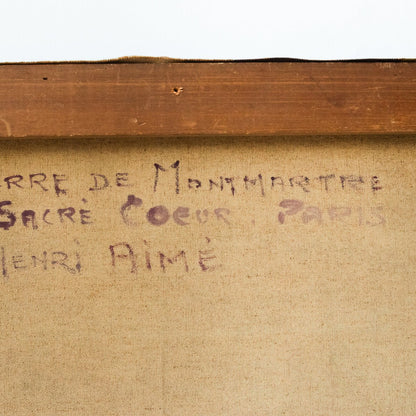 ERRE DE MONTMARTRE
SACRÈ COEUR. PARIS
HENRI AIMÉ